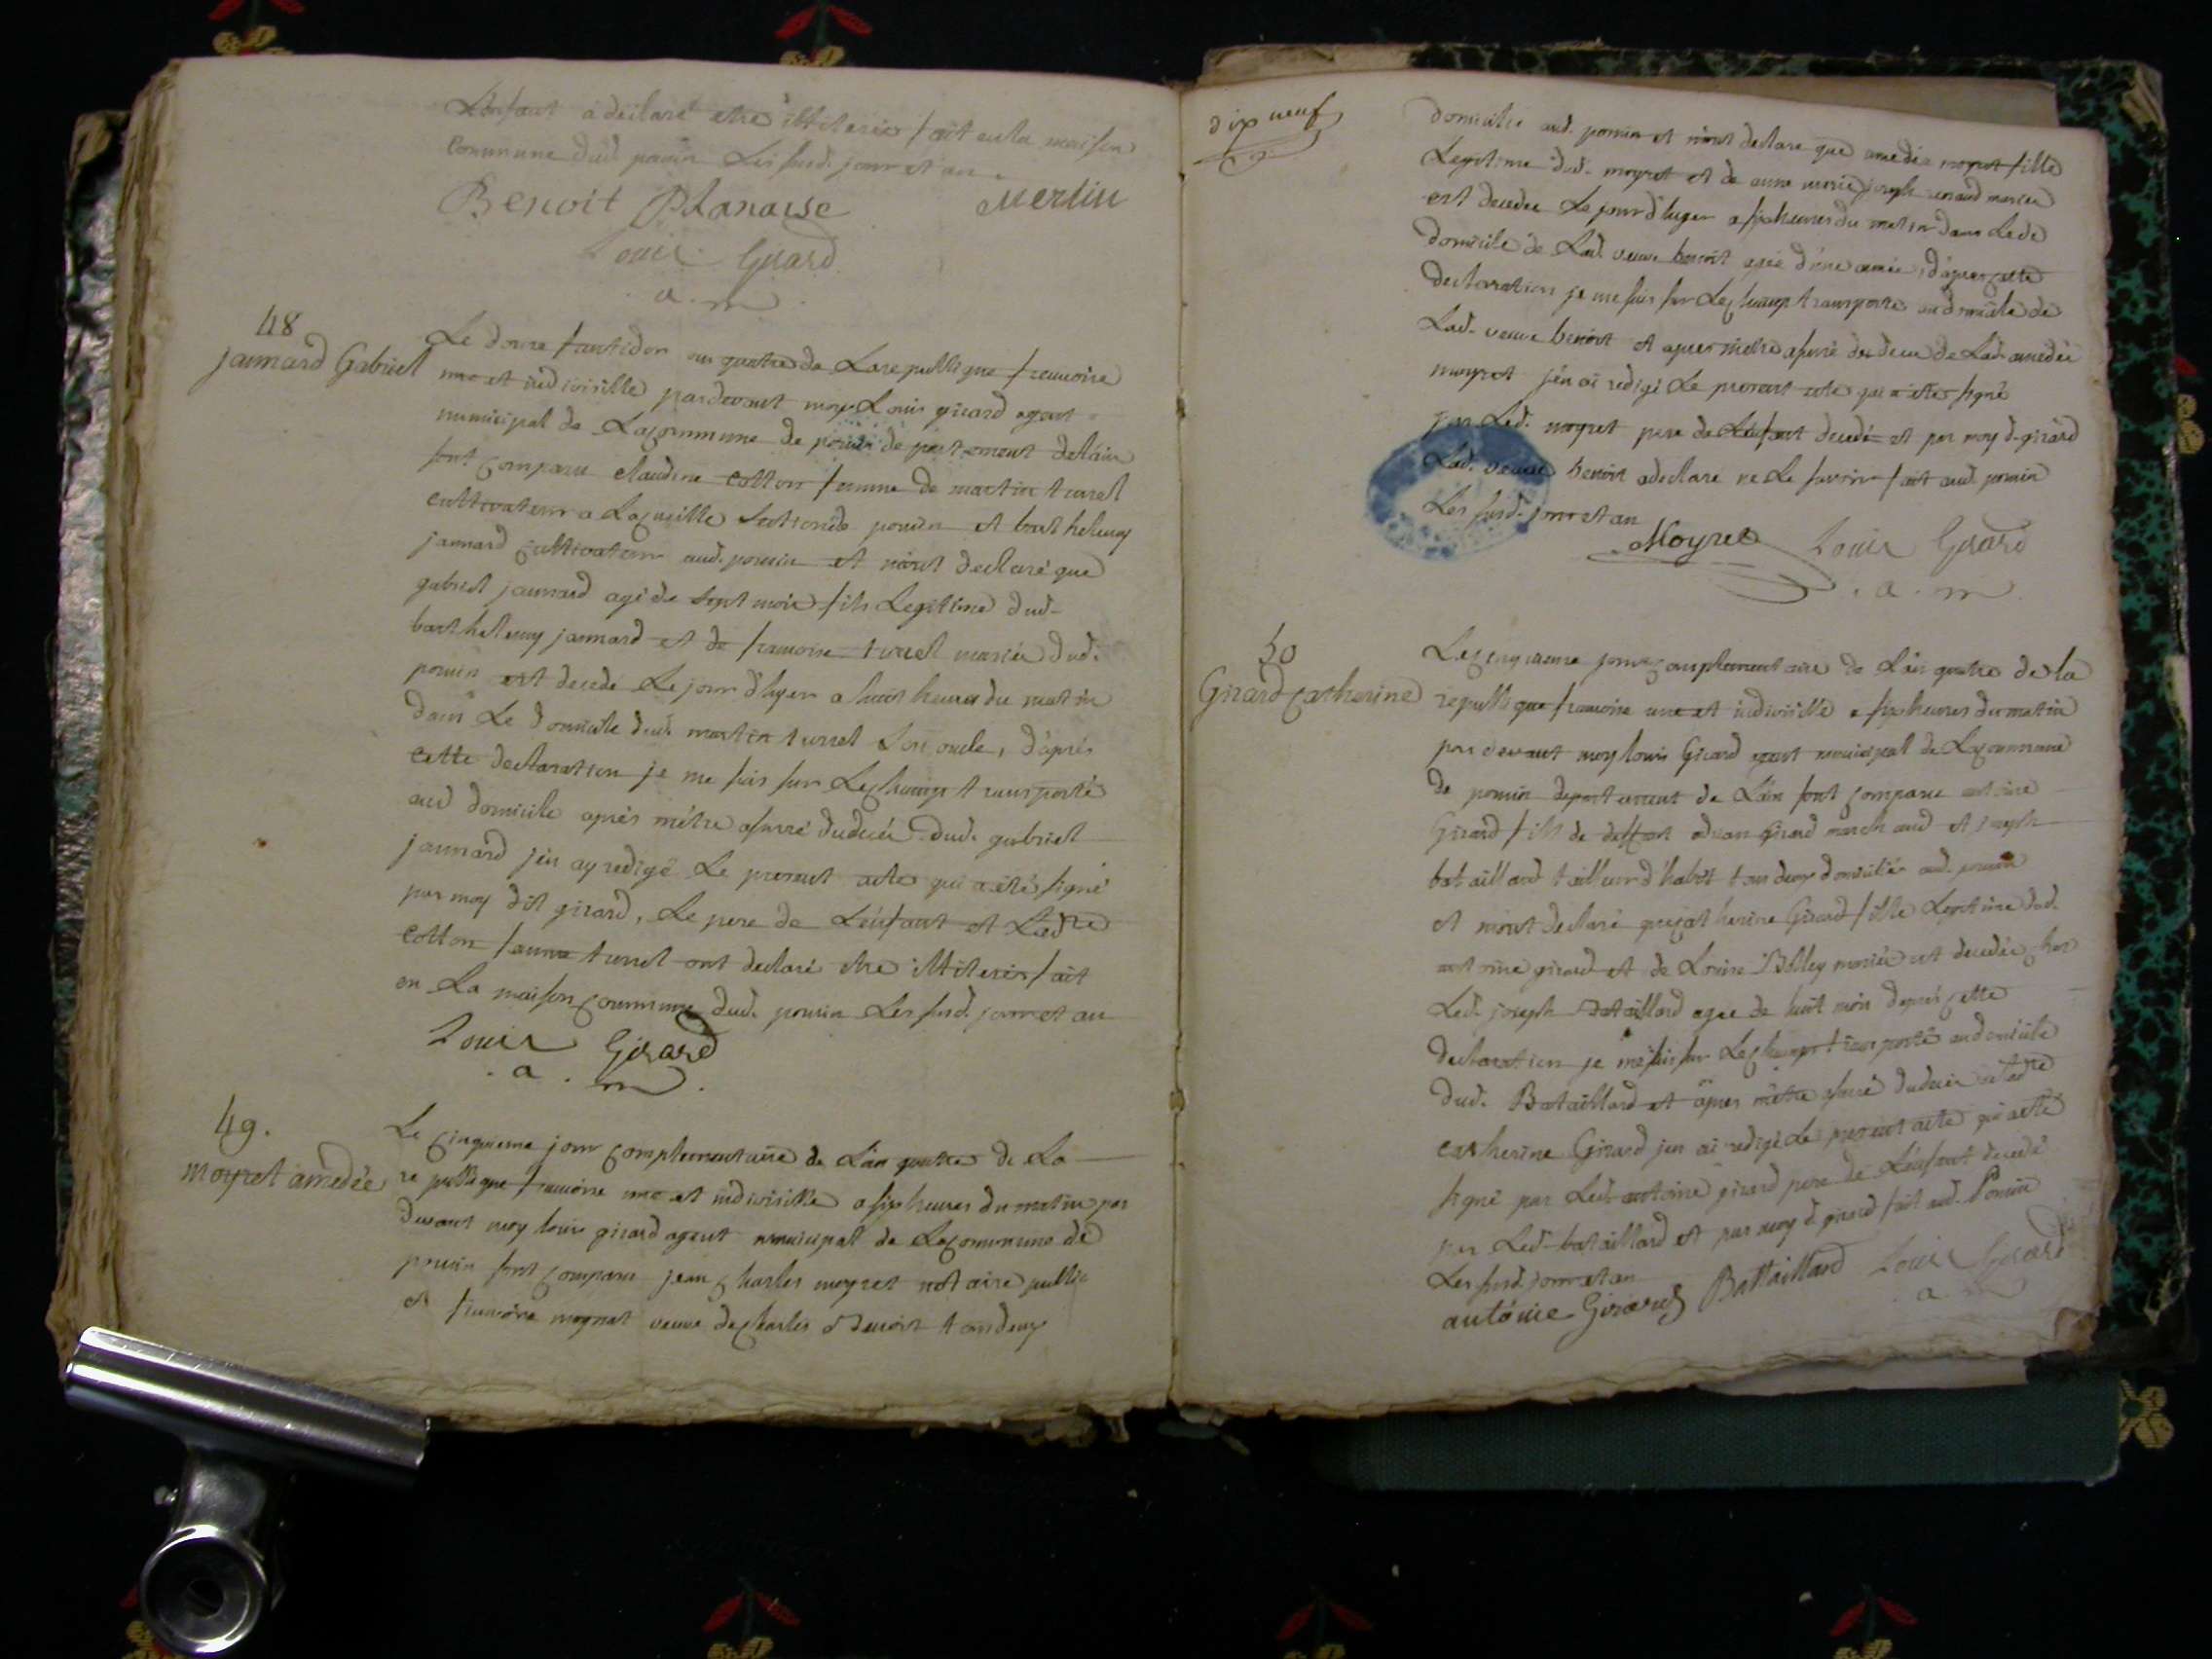 L'enfant a déclaré etre illiteré fait en la maison
Commune dud. poncin Les susd. jour et an.
Benoit Planaise Merlin
Louis Girard
a. m
48
jannard Gabriel
Le douze fructidor an quatre de La republique francoise
une et indivisible pardevant moy Louis girard agent
municipal de La commune de poncin département de l'ain
sont comparu claudine Cotton femme de martin turrel
cultivateur a La section de poncin et barthelemy
jannard cultivateur aud. poncin et m'ont declaré que
gabriel jannard agé de sept mois fils Legitime dud.
barthelemy jannard et de francoise turrel mariés dud.
poncin est decedé Le jour d'hyer a huit heures du matin
dans Le domicile dud. martin turrel son oncle, d'après
cette declaration je me suis sur Le champ transporté
aud domicile après m'être assuré du decés dud. gabriel
jannard j'en ay redigé Le present acte qui a eté signé
par moy dit girard, Le pere de L'enfant et Ladte
Cotton femme turrel ont declaré etre illiterés fait
en La maison commune dud. poncin Les susd. jour et an
Louis Girard
. a . m .
49.
moyret amedée
Le cinquieme jour complementaire de L'an quatre de La
republique francoise une et indivisible a six heures du matin par
devant moy louis girard agent municipal de La commune de
poncin sont comparu jean charles moyret notaire public
et francoise mognat veuve de charles Benoit tous deux
dix neuf
domiciliés aud. poncin et m'ont declaré que amedée moyret fille
Legitime dud. moyret et de anne marie joseph renaud mariés
est decedée Le jour d'hyer a six heures du matin dans Le de
domicile de Lad. veuve benoit agée d'une année, d'après cette
declaration je me suis sur Le champ transporté au domicile de
Lad. veuve benoit et apres m'etre assuré du deces de Lad. amedée
moyret j'en ai redigé Le present acte qui a eté signé
par Led. moyret pere de L'enfant decedé et par moy d. girard
Lad. veuve benoit a declaré ne Le savoir fait aud. poncin
Les susd. jour et an
Moyret Louis Girard
. a . m
50
Girard Catherine
Le cinquieme jour complementaire de L'an quatre de la
republique francoise une et indivisible a six heures du matin
par devant moy louis Girard agent municipal de La commune
de poncin departement de L'ain sont comparu antoine
Girard fils de deffunt Girard marchand et joseph
bataillard tailleur d'habit tous deux domiciliés aud. poncin
et m'ont declaré que catherine Girard fille Legitime dud.
antoine girard et de Louise Bolley mariés est decedée chez
Led. joseph Bataillard agée de huit mois d'après cette
declaration je me suis sur Le champ transporté au domicile
dud. Bataillard et apres m'etre assuré du decés de ladte
catherine Girard j'en ai redigé Le present acte qui a eté
signé par Led. antoine girard pere de L'enfant decedé
par Led. bataillard et par moy d. girard fait aud. Poncin
Les susd. jour et an
antoine Girard Battaillard Louis Girard
a m